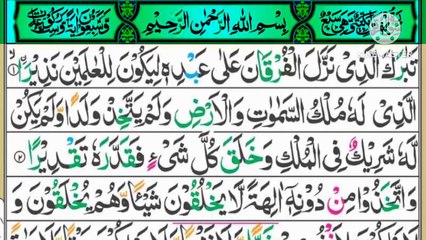 بِسْمِ اللّٰهِ الرَّحْمٰنِ الرَّحِيْمِ
تَبٰرَكَ الَّذِىْ نَزَّلَ الْفُرْقَانَ عَلٰى عَبْدِهٖ لِيَكُوْنَ لِلْعٰلَمِيْنَ نَذِيْرَا ۙ﴿۱﴾
الَّذِىْ لَهٗ مُلْكُ السَّمٰوٰتِ وَالْاَرْضِ وَلَمْ يَتَّخِذْ وَلَدًا وَّلَمْ يَكُنْ
لَّهٗ شَرِيْكٌ فِى الْمُلْكِ وَخَلَقَ كُلَّ شَىْءٍ فَقَدَّرَهٗ تَقْدِيْرًا ﴿۲﴾
وَاتَّخَذُوْا مِنْ دُوْنِهٖۤ اٰلِهَةً لَّا يَخْلُقُوْنَ شَيْـًٔا وَّهُمْ يُخْلَقُوْنَ وَ